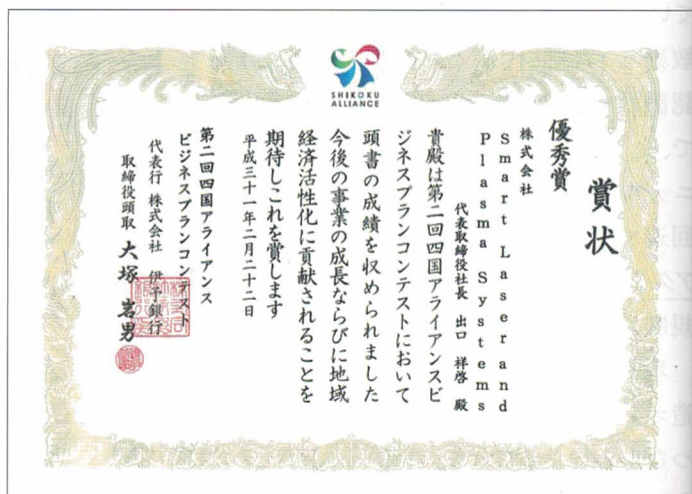 SHIKOKU
ALLIANCE
賞状
優秀賞
株式会社
Smart Laser and
Plasma Systems
代表取締役社長 出口 祥啓 殿
貴殿は第二回四国アライアンスビ
ジネスプランコンテストにおいて
頭書の成績を収められました
今後の事業の成長ならびに地域
経済活性化に貢献されることを
期待しこれを賞します
平成三十一年二月二十二日
第二回四国アライアンス
ビジネスプランコンテスト
代表行 株式会社 伊予銀行
取締役頭取 大塚 岩男